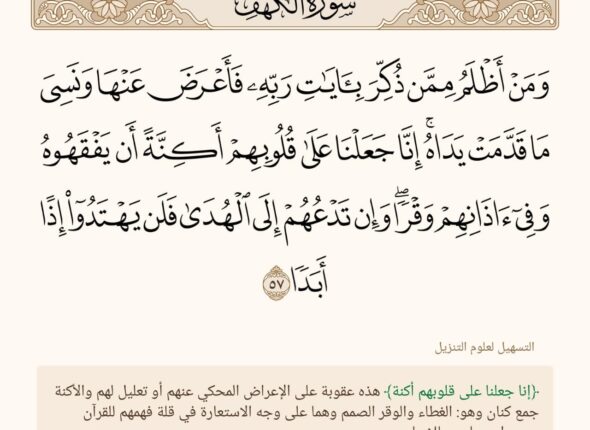 سورة الكهف
وَمَنۡ أَظۡلَمُ مِمَّن ذُكِّرَ بِـَٔايَٰتِ رَبِّهِۦ فَأَعۡرَضَ عَنۡهَا وَنَسِيَ
مَا قَدَّمَتۡ يَدَاهُۚ إِنَّا جَعَلۡنَا عَلَىٰ قُلُوبِهِمۡ أَكِنَّةً أَن يَفۡقَهُوهُ
وَفِيٓ ءَاذَانِهِمۡ وَقۡرٗاۖ وَإِن تَدۡعُهُمۡ إِلَى ٱلۡهُدَىٰ فَلَن يَهۡتَدُوٓاْ إِذًا
أَبَدٗا ٥٧
التسهيل لعلوم التنزيل
﴿إنا جعلنا على قلوبهم أكنة﴾ هذه عقوبة على الإعراض المحكي عنهم أو تعليل لهم والأكنة
جمع كنان وهو: الغطاء والوقر الصمم وهما على وجه الاستعارة في قلة فهمهم للقرآن